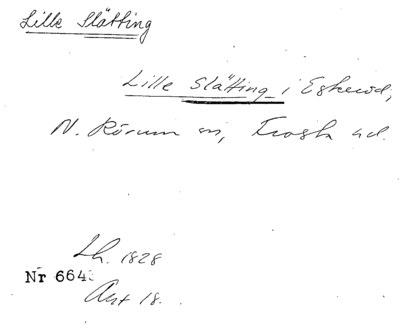 Lille Slätting
Lille Slätting i Eskered,
N. Rörum sn, Frosta hd.
Lh. 1828
Nr 664
Akt 18.